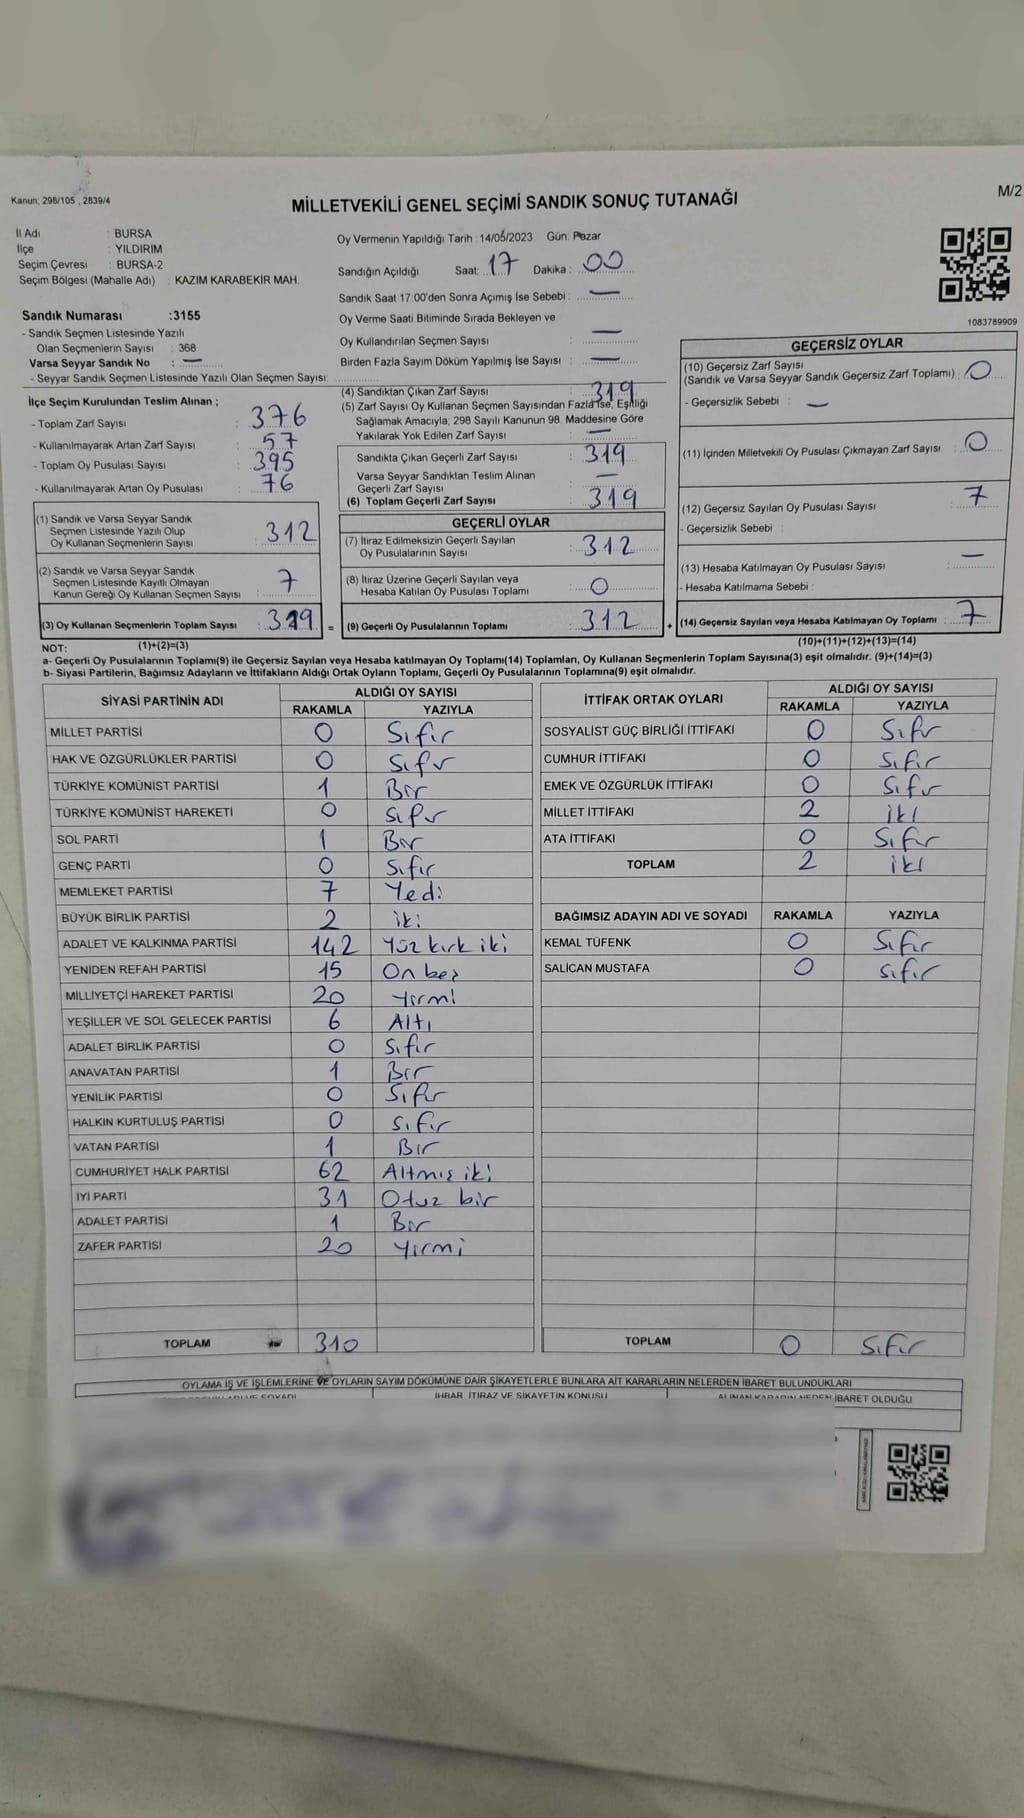 Kanun; 298/105 , 2839/4
M/2
MİLLETVEKİLİ GENEL SEÇİMİ SANDIK SONUÇ TUTANAĞI
İl Adı : BURSA
İlçe : YILDIRIM
Seçim Çevresi : BURSA-2
Seçim Bölgesi (Mahalle Adı) : KAZIM KARABEKİR MAH.
Sandık Numarası :3155
- Sandık Seçmen Listesinde Yazılı
Olan Seçmenlerin Sayısı : 368
Varsa Seyyar Sandık No : —
- Seyyar Sandık Seçmen Listesinde Yazılı Olan Seçmen Sayısı:
İlçe Seçim Kurulundan Teslim Alınan ;
- Toplam Zarf Sayısı : 376
- Kullanılmayarak Artan Zarf Sayısı : 57
- Toplam Oy Pusulası Sayısı : 395
- Kullanılmayarak Artan Oy Pusulası : 76
(1) Sandık ve Varsa Seyyar Sandık
Seçmen Listesinde Yazılı Olup
Oy Kullanan Seçmenlerin Sayısı : 312
(2) Sandık ve Varsa Seyyar Sandık
Seçmen Listesinde Kayıtlı Olmayan
Kanun Gereği Oy Kullanan Seçmen Sayısı : 7
(3) Oy Kullanan Seçmenlerin Toplam Sayısı : 319 =
Oy Vermenin Yapıldığı Tarih : 14/05/2023 Gün: Pazar
Sandığın Açıldığı Saat: 17 Dakika : 00
Sandık Saat 17:00'den Sonra Açımış İse Sebebi : —
Oy Verme Saati Bitiminde Sırada Bekleyen ve
Oy Kullandırılan Seçmen Sayısı : —
Birden Fazla Sayım Döküm Yapılmış İse Sayısı : —
(4) Sandıktan Çıkan Zarf Sayısı : 319
(5) Zarf Sayısı Oy Kullanan Seçmen Sayısından Fazla İse, Eşitliği
Sağlamak Amacıyla, 298 Sayılı Kanunun 98. Maddesine Göre
Yakılarak Yok Edilen Zarf Sayısı : —
Sandıkta Çıkan Geçerli Zarf Sayısı : 319
Varsa Seyyar Sandıktan Teslim Alınan
Geçerli Zarf Sayısı : —
(6) Toplam Geçerli Zarf Sayısı : 319
GEÇERLİ OYLAR
(7) İtiraz Edilmeksizin Geçerli Sayılan
Oy Pusulalarının Sayısı : 312
(8) İtiraz Üzerine Geçerli Sayılan veya
Hesaba Katılan Oy Pusulası Toplamı : 0
(9) Geçerli Oy Pusulalarının Toplamı : 312 +
1083789909
GEÇERSİZ OYLAR
(10) Geçersiz Zarf Sayısı
(Sandık ve Varsa Seyyar Sandık Geçersiz Zarf Toplamı) : 0
- Geçersizlik Sebebi : —
(11) İçinden Milletvekili Oy Pusulası Çıkmayan Zarf Sayısı : 0
(12) Geçersiz Sayılan Oy Pusulası Sayısı : 7
- Geçersizlik Sebebi :
(13) Hesaba Katılmayan Oy Pusulası Sayısı : —
- Hesaba Katılmama Sebebi :
(14) Geçersiz Sayılan veya Hesaba Katılmayan Oy Toplamı : 7
NOT: (1)+(2)=(3) (10)+(11)+(12)+(13)=(14)
a- Geçerli Oy Pusulalarının Toplamı(9) ile Geçersiz Sayılan veya Hesaba katılmayan Oy Toplamı(14) Toplamları, Oy Kullanan Seçmenlerin Toplam Sayısına(3) eşit olmalıdır. (9)+(14)=(3)
b- Siyasi Partilerin, Bağımsız Adayların ve İttifakların Aldığı Ortak Oyların Toplamı, Geçerli Oy Pusulalarının Toplamına(9) eşit olmalıdır.
SİYASİ PARTİNİN ADI ALDIĞI OY SAYISI
RAKAMLA YAZIYLA
MİLLET PARTİSİ 0 Sıfır
HAK VE ÖZGÜRLÜKLER PARTİSİ 0 Sıfır
TÜRKİYE KOMÜNİST PARTİSİ 1 Bir
TÜRKİYE KOMÜNİST HAREKETİ 0 Sıfır
SOL PARTİ 1 Bir
GENÇ PARTİ 0 Sıfır
MEMLEKET PARTİSİ 7 Yedi
BÜYÜK BİRLİK PARTİSİ 2 iki
ADALET VE KALKINMA PARTİSİ 142 Yüz kırk iki
YENİDEN REFAH PARTİSİ 15 On beş
MİLLİYETÇİ HAREKET PARTİSİ 20 yirmi
YEŞİLLER VE SOL GELECEK PARTİSİ 6 Altı
ADALET BİRLİK PARTİSİ 0 Sıfır
ANAVATAN PARTİSİ 1 Bir
YENİLİK PARTİSİ 0 Sıfır
HALKIN KURTULUŞ PARTİSİ 0 sıfır
VATAN PARTİSİ 1 Bir
CUMHURİYET HALK PARTİSİ 62 Altmış iki
İYİ PARTİ 31 Otuz bir
ADALET PARTİSİ 1 Bir
ZAFER PARTİSİ 20 yirmi
TOPLAM 310
İTTİFAK ORTAK OYLARI ALDIĞI OY SAYISI
RAKAMLA YAZIYLA
SOSYALİST GÜÇ BİRLİĞİ İTTİFAKI 0 Sıfır
CUMHUR İTTİFAKI 0 Sıfır
EMEK VE ÖZGÜRLÜK İTTİFAKI 0 Sıfır
MİLLET İTTİFAKI 2 iki
ATA İTTİFAKI 0 Sıfır
TOPLAM 2 iki
BAĞIMSIZ ADAYIN ADI VE SOYADI RAKAMLA YAZIYLA
KEMAL TÜFENK 0 Sıfır
SALİCAN MUSTAFA 0 sıfır
TOPLAM 0 Sıfır
OYLAMA İŞ VE İŞLEMLERİNE VE OYLARIN SAYIM DÖKÜMÜNE DAİR ŞİKAYETLERLE BUNLARA AİT KARARLARIN NELERDEN İBARET BULUNDUKLARI
İHBAR, İTİRAZ VE ŞİKAYETİN KONUSU
ALINAN KARARIN NEDEN İBARET OLDUĞU